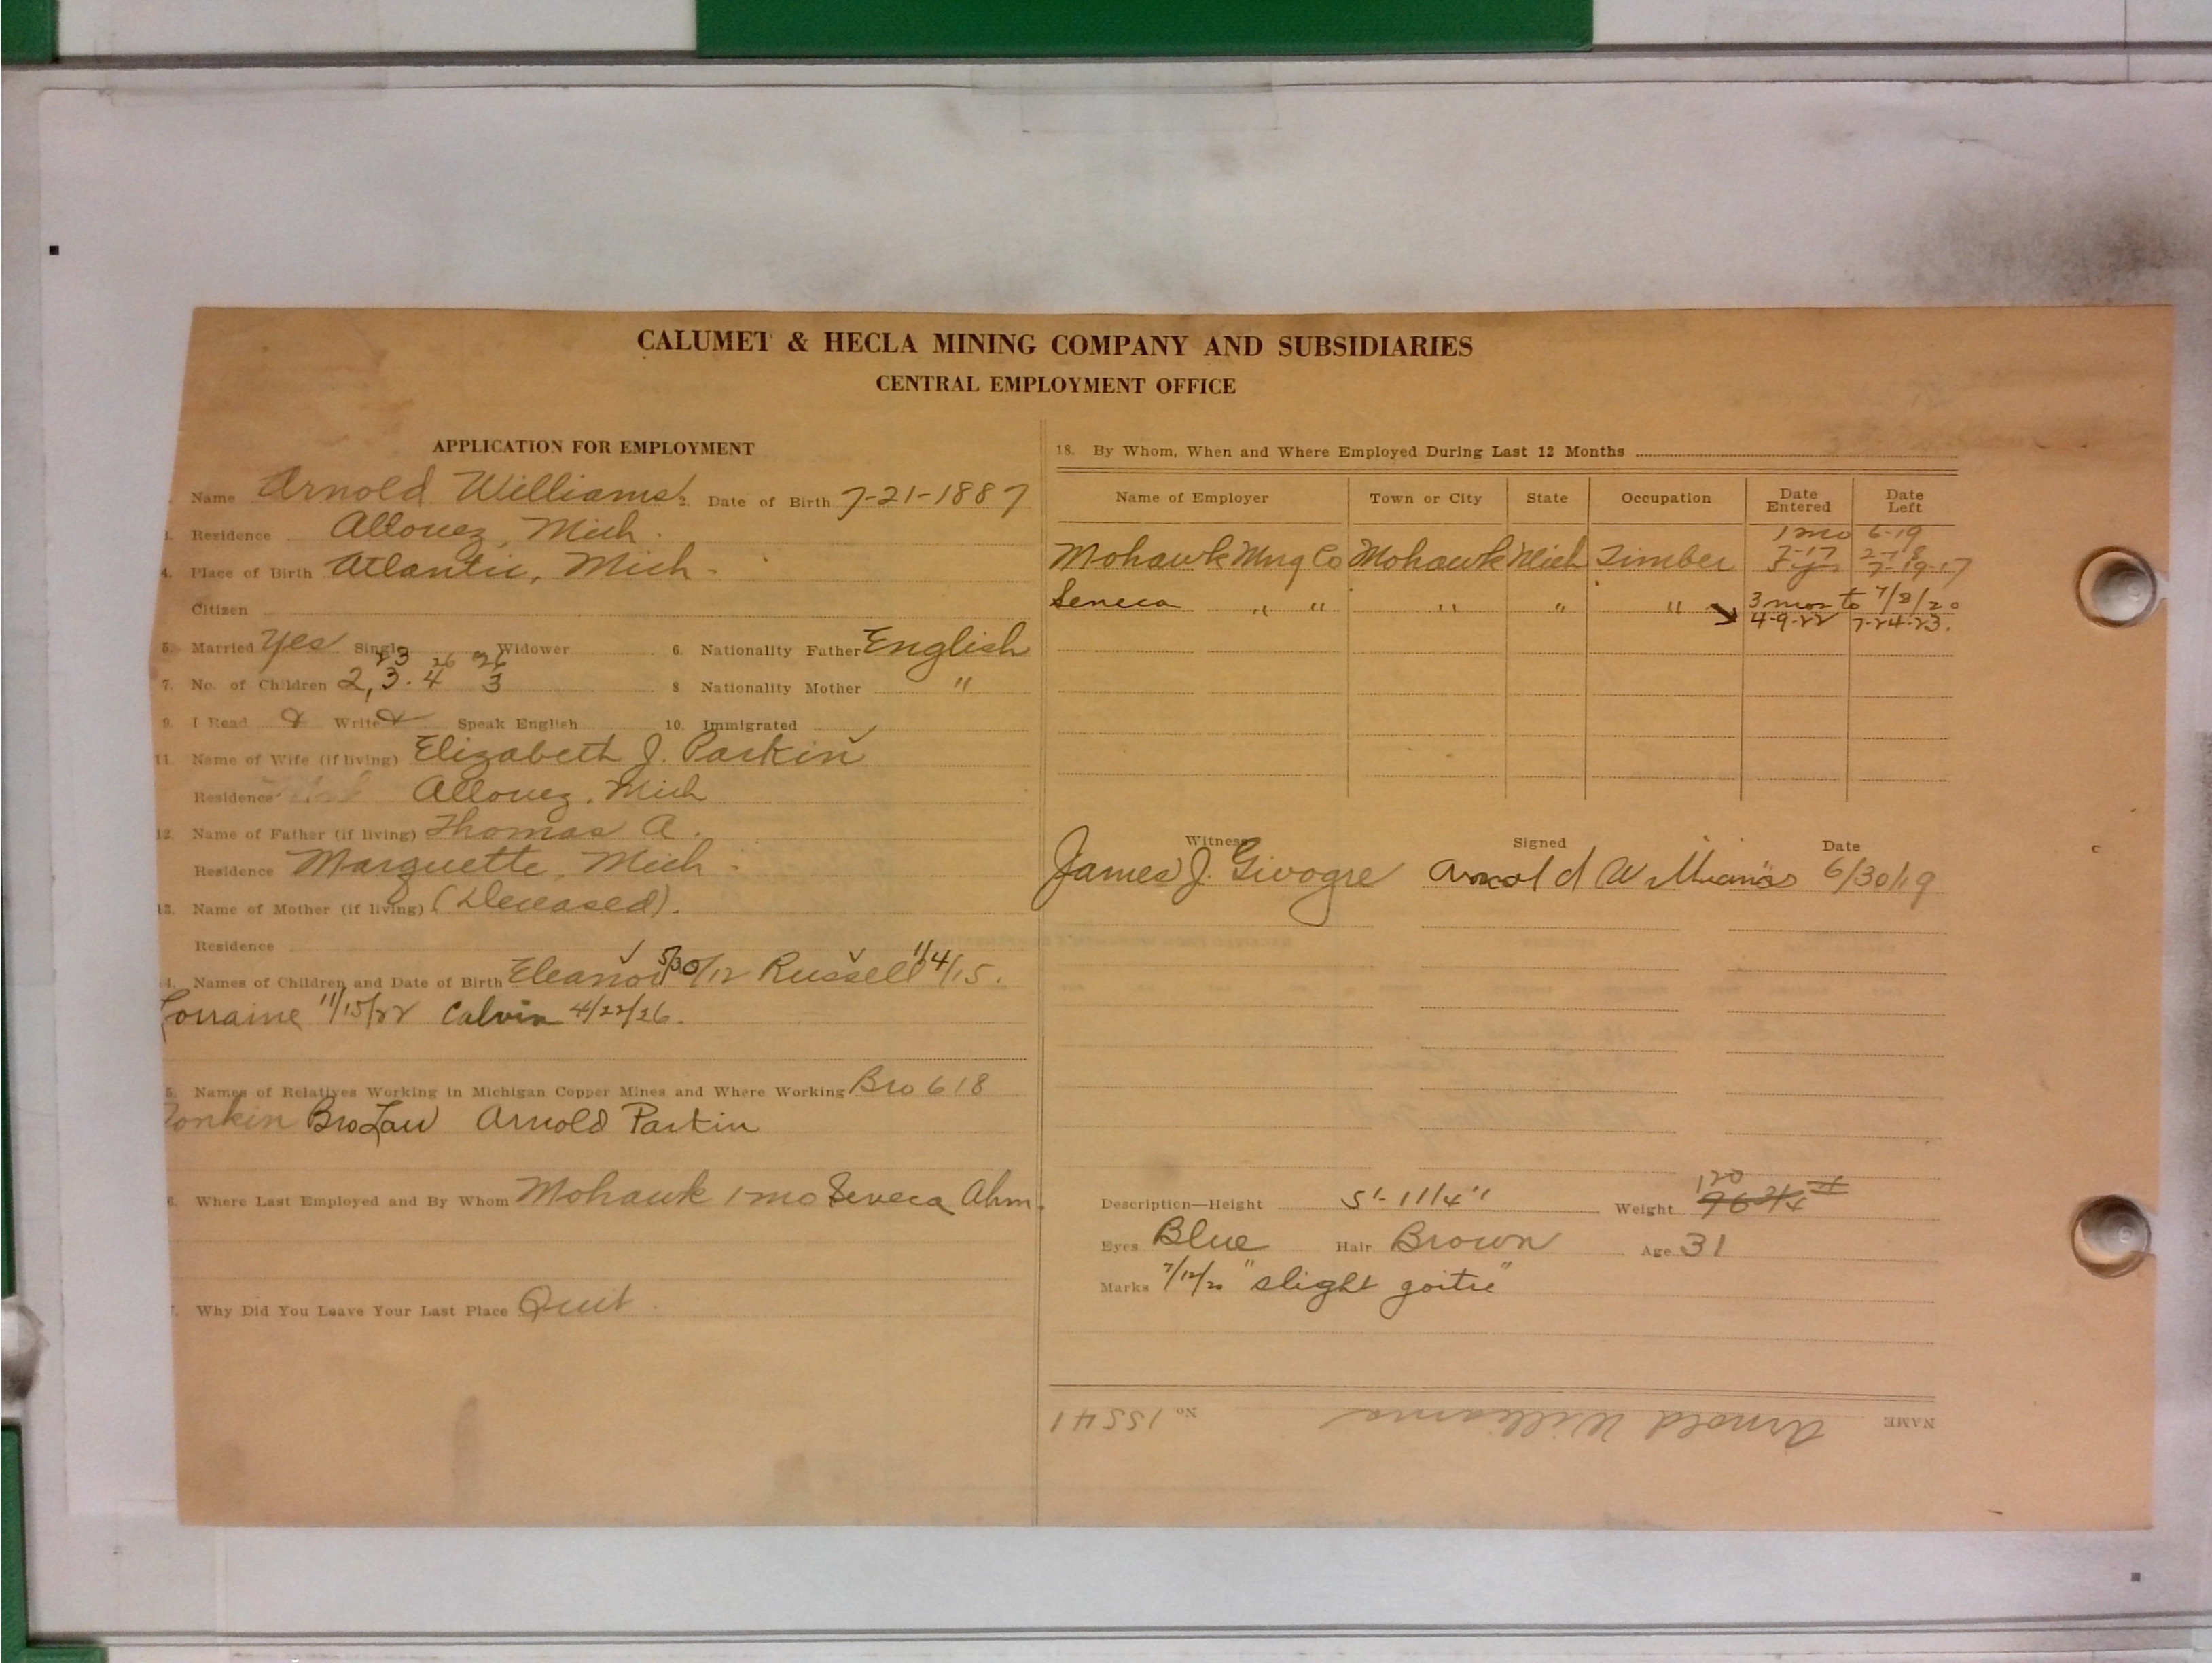 CALUMET & HECLA MINING COMPANY AND SUBSIDIARIES
CENTRAL EMPLOYMENT OFFICE
APPLICATION FOR EMPLOYMENT
Name Arnold Williams 2. Date of Birth 7-21-1887
3. Residence Allouez, Mich.
4. Place of Birth Atlantic, Mich.
Citizen
5. Married Yes Single Widower 6. Nationality Father English
23 26 26
7. No. of Children 2, 3. 4 3 8 Nationality Mother "
9. I Read & Write & Speak English 10. Immigrated
11. Name of Wife (if living) Elizabeth J. Parkin
Residence Allouez, Mich
12. Name of Father (if living) Thomas A.
Residence Marquette, Mich.
13. Name of Mother (if living) (Deceased).
Residence
14. Names of Children and Date of Birth Eleanor 5/30/12 Russell 1/4/15.
Lorraine 11/15/22 Calvin 4/22/26.
5. Names of Relatives Working in Michigan Copper Mines and Where Working Bro 618
Tonkin Bro Law Arnold Parkin
6. Where Last Employed and By Whom Mohawk 1 mo Seneca Ahm.
7. Why Did You Leave Your Last Place Quit.
18. By Whom, When and Where Employed During Last 12 Months
Name of Employer Town or City State Occupation Date Entered Date Left
1 mo 6-19
Mohawk Mng Co Mohawk Mich Timber 7-19-17
Seneca " " " " " 3 mos to 7/8/20
4-9-22 7-24-23.
Witness Signed Date
James J. Givogre Arnold Williams 6/30/19
Description—Height 5'-11 1/4" Weight 120 96 3/4 #
Eyes Blue Hair Brown Age 31
Marks 7/12/20 "slight goitre"
NAME Arnold Williams No 15541